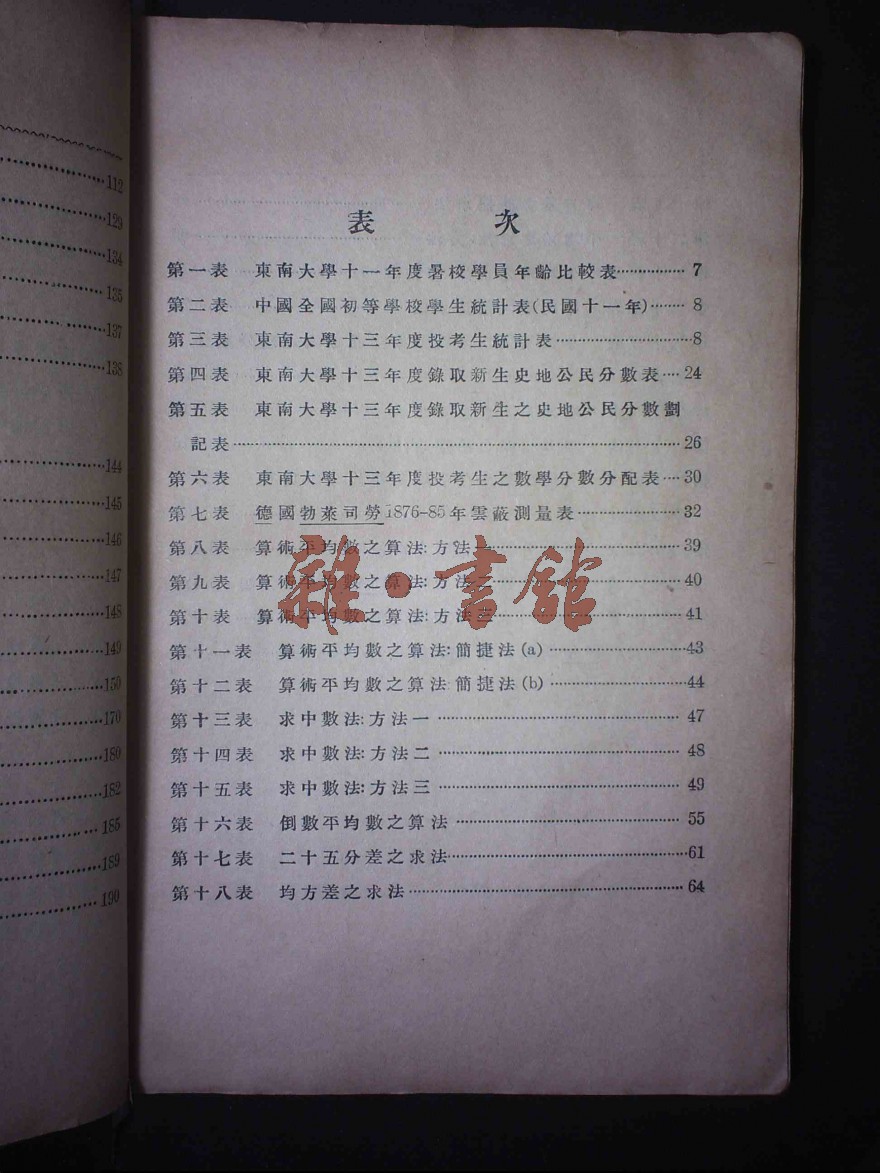 112
129
134
135
137
138
144
145
146
147
148
149
150
170
180
182
185
189
190
表 次
第一表 東南大學十一年度暑校學員年齡比較表 7
第二表 中國全國初等學校學生統計表(民國十一年) 8
第三表 東南大學十三年度投考生統計表 8
第四表 東南大學十三年度錄取新生史地公民分數表 24
第五表 東南大學十三年度錄取新生之史地公民分數劃
記表 26
第六表 東南大學十三年度投考生之數學分數分配表 30
第七表 德國勃萊司勞1876-85年雲蔽測量表 32
第八表 算術平均數之算法:方法一 39
第九表 算術平均數之算法:方法二 40
第十表 算術平均數之算法:方法三 41
第十一表 算術平均數之算法:簡捷法(a) 43
第十二表 算術平均數之算法:簡捷法(b) 44
第十三表 求中數法:方法一 47
第十四表 求中數法:方法二 48
第十五表 求中數法:方法三 49
第十六表 倒數平均數之算法 55
第十七表 二十五分差之求法 61
第十八表 均方差之求法 64
雜·書館